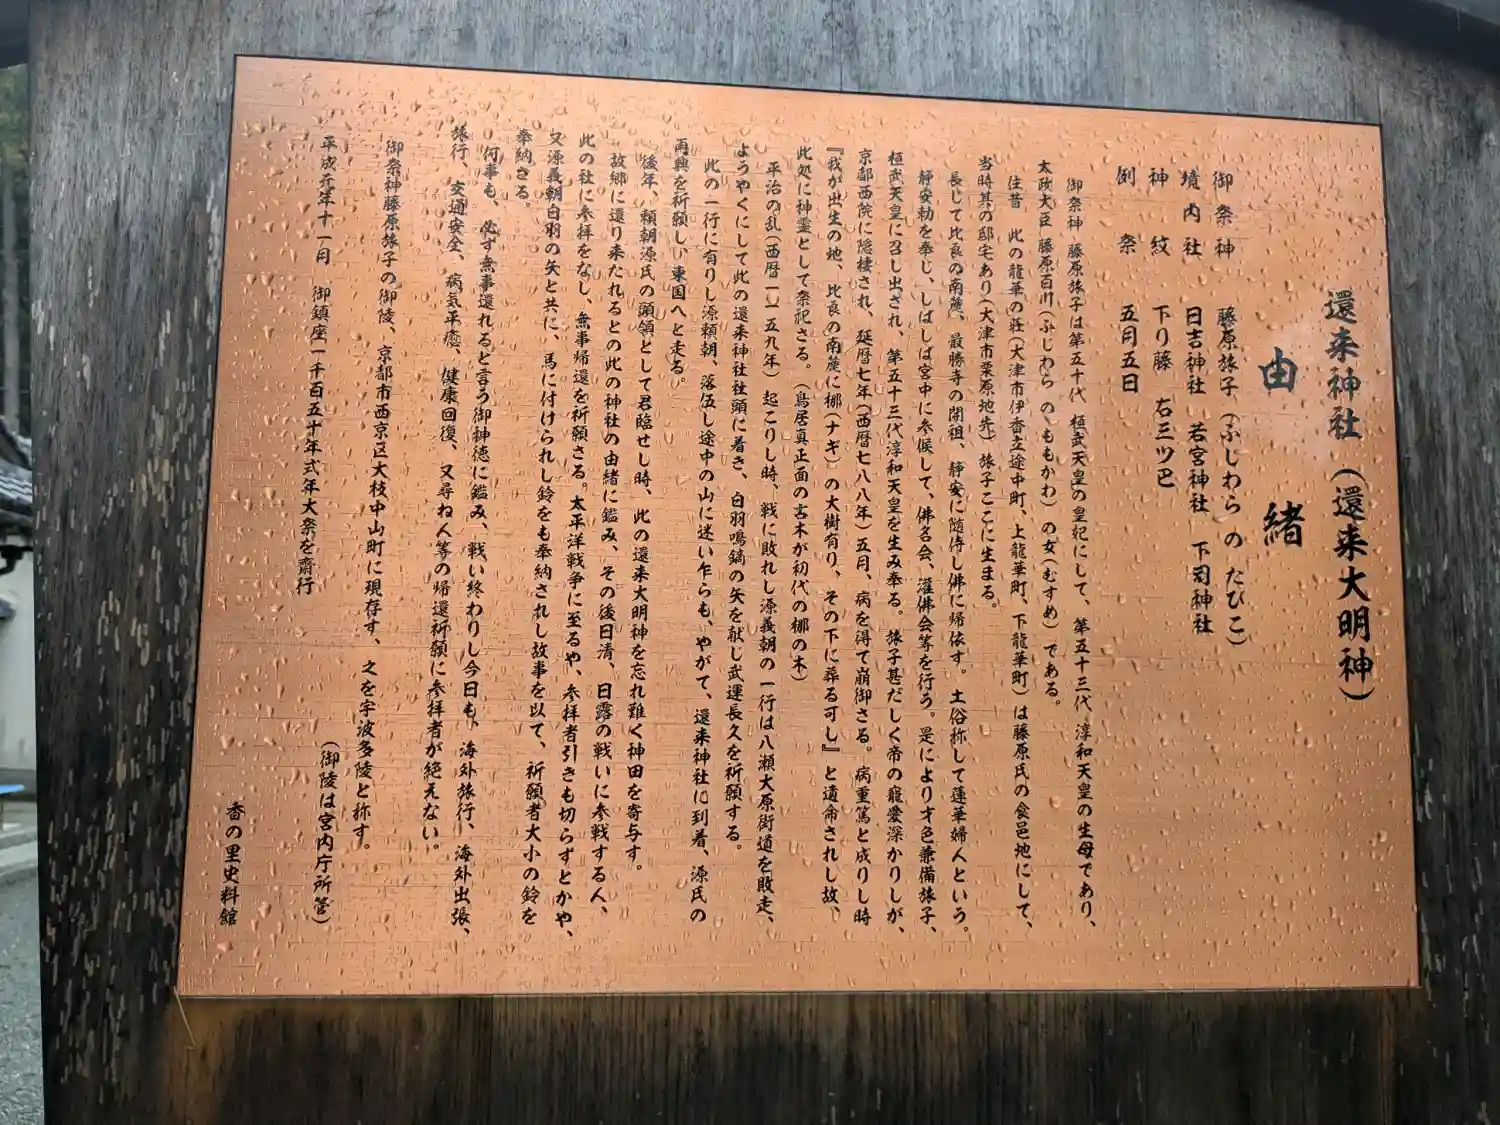 還来神社（還来大明神）
由緒
御祭神 藤原旅子（ふじわら の たびこ）
境内社 日吉神社 若宮神社 下司神社
神紋 下り藤 右三ツ巴
例祭 五月五日
御祭神 藤原旅子は第五十代 桓武天皇の皇妃にして、第五十三代 淳和天皇の生母であり、
太政大臣 藤原百川（ふじわら の ももかわ）の女（むすめ）である。
往昔 此の龍華の荘（大津市伊香立途中町、上龍華町、下龍華町）は藤原氏の食邑地にして、
当時其の邸宅あり（大津市栗原地先）旅子ここに生まる。
長じて比良の南麓、最勝寺の開祖、静安に随侍し佛に帰依す。土俗称して蓮華婦人という。
静安勅を奉じ、しばしば宮中に参候して、佛名会、灌佛会等を行う。是により才色兼備旅子、
桓武天皇に召し出され、第五十三代淳和天皇を生み奉る。旅子甚だしく帝の寵愛深かりしが、
京都西院に隠棲され、延暦七年（西暦七八八年）五月、病を得て崩御さる。病重篤と成りし時
『我が出生の地、比良の南麓に梛（ナギ）の大樹有り、その下に葬る可し』と遺命されし故、
此処に神霊として祭祀さる。（鳥居真正面の古木が初代の梛の木）
平治の乱（西暦一一五九年）起こりし時、戦に敗れし源義朝の一行は八瀬大原街道を敗走、
ようやくにして此の還来神社社頭に着き、白羽鳴鏑の矢を献じ武運長久を祈願する。
此の一行に有りし源頼朝、落伍し途中の山に迷い乍らも、やがて、還来神社に到着、源氏の
再興を祈願し、東国へと走る。
後年、頼朝源氏の頭領として君臨せし時、此の還来大明神を忘れ難く神田を寄与す。
故郷に還り来たれるとの此の神社の由緒に鑑み、その後日清、日露の戦いに参戦する人、
此の社に参拝をなし、無事帰還を祈願さる。太平洋戦争に至るや、参拝者引きも切らずとかや、
又源義朝白羽の矢と共に、馬に付けられし鈴をも奉納されし故事を以て、祈願者大小の鈴を
奉納さる。
何事も、必ず無事還れると言う御神徳に鑑み、戦い終わりし今日も、海外旅行、海外出張、
旅行、交通安全、病気平癒、健康回復、又尋ね人等の帰還祈願に参拝者が絶えない。
御祭神藤原旅子の御陵、京都市西京区大枝中山町に現存す、之を宇波多陵と称す。
（御陵は宮内庁所管）
平成元年十一月 御鎮座一千百五十年式年大祭を斎行
香の里史料館